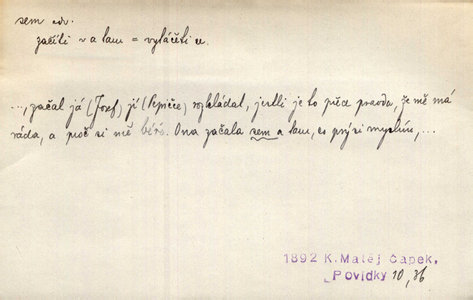 sem adv.
začíti ~ a tam = vytáčeti se.
..., začal já (Josef) jí (Pepičce) rozkládat, jestli je to přece pravda, že mě má
ráda, a proč si mě béře. Ona začala sem a tam, co prý si myslím, ...
1892 K. Matěj Čapek,
„Povídky 10, 36